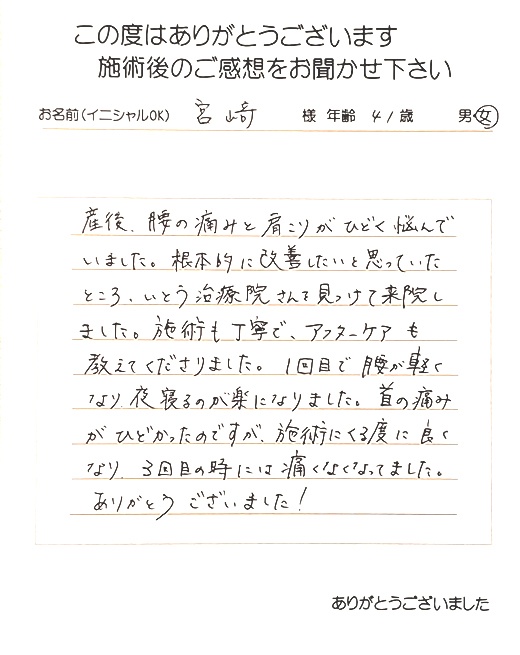 この度はありがとうございます
施術後のご感想をお聞かせ下さい
お名前(イニシャルOK) 宮﨑 様 年齢 41歳 男・女
産後、腰の痛みと肩こりがひどく悩んで
いました。根本的に改善したいと思っていた
ところ、いとう治療院さんを見つけて来院し
ました。施術も丁寧で、アフターケアも
教えてくださりました。1回目で腰が軽く
なり、夜寝るのが楽になりました。首の痛み
がひどかったのですが、施術にくる度に良く
なり、3回目の時には痛くなくなってました。
ありがとうございました!
ありがとうございました